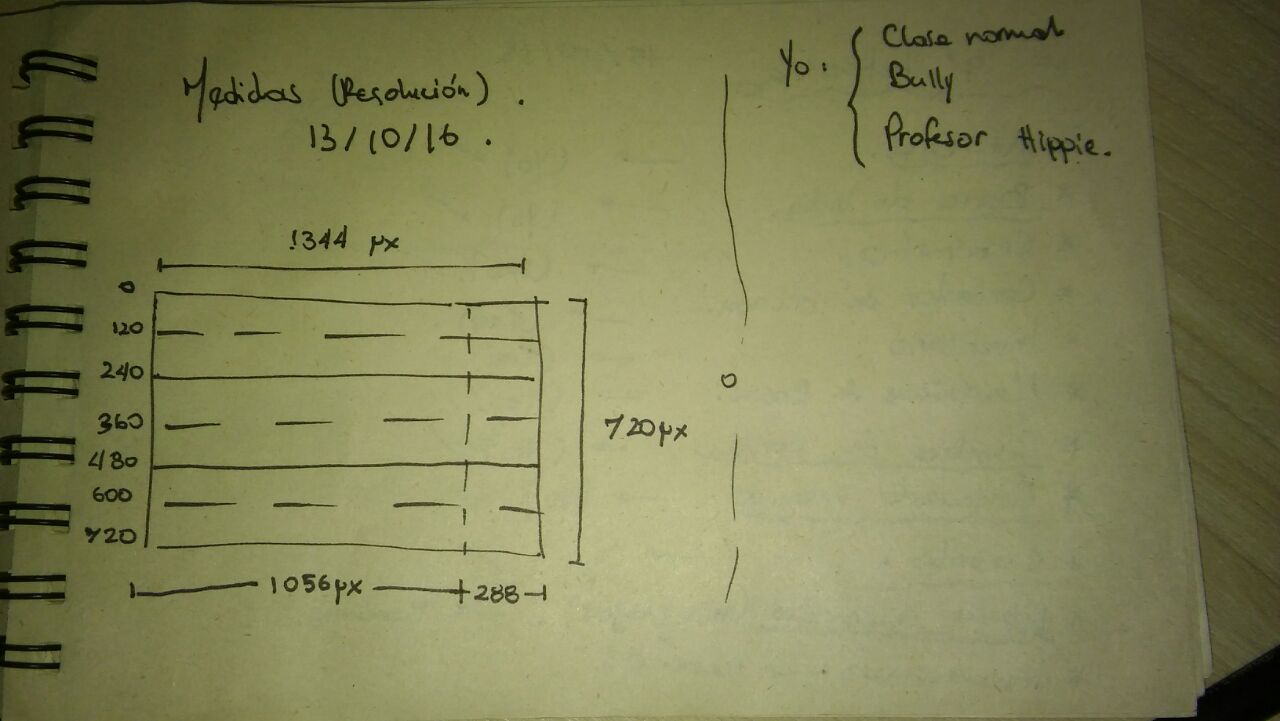 Medidas (Resolución).
13/10/16.
1344 px
0
120
240
360
480
600
720
720px
1056px
288
Yo:
Clase normal
Bully
Profesor Hippie.